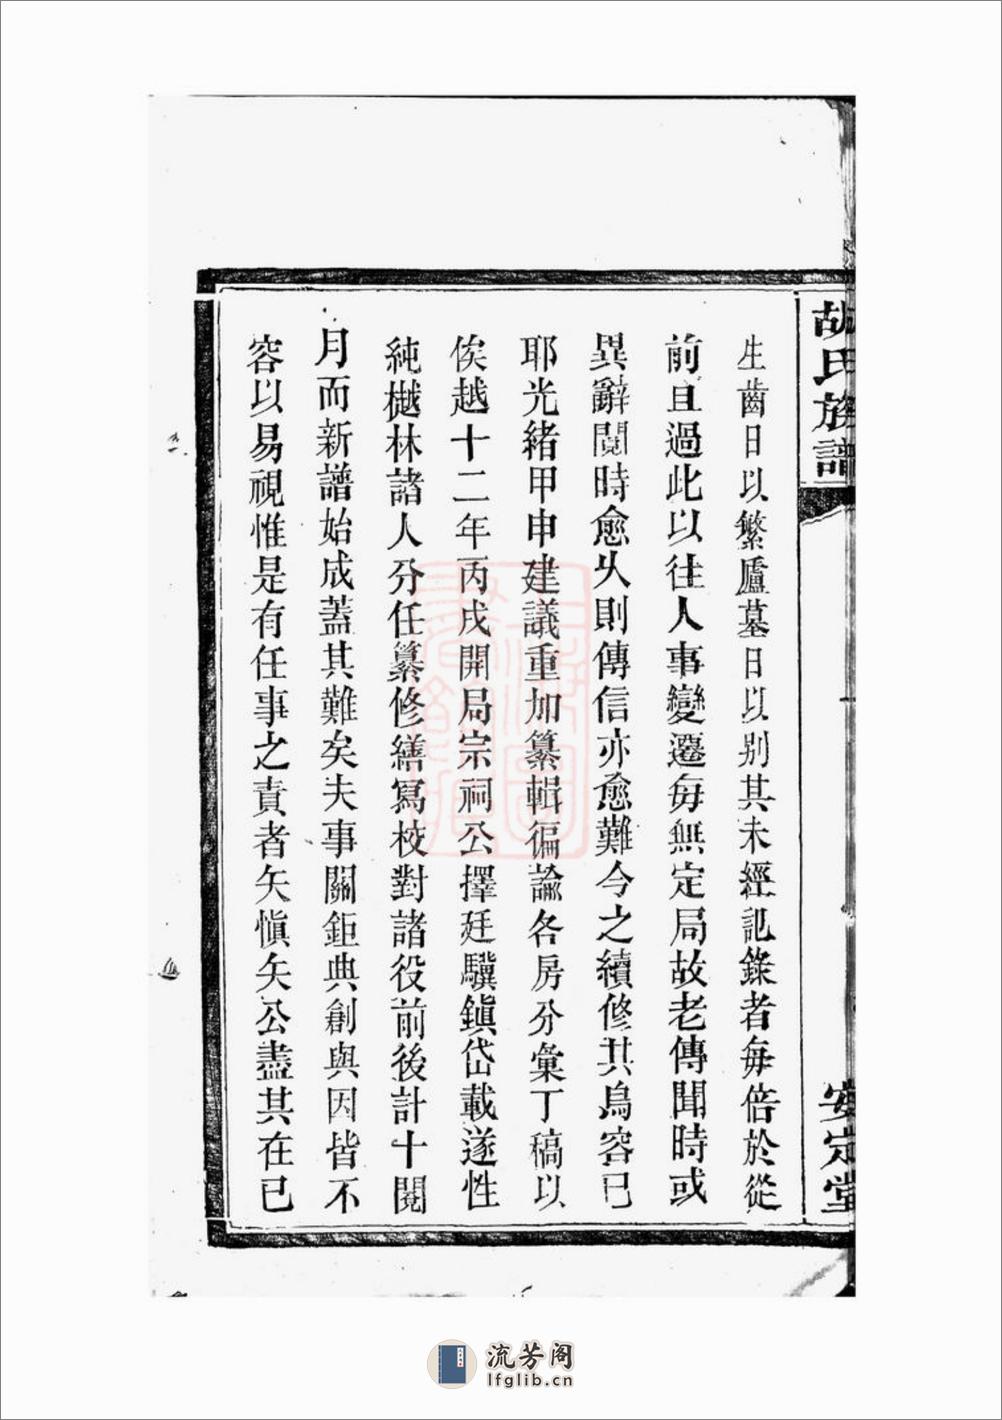 胡氏族譜
一
安定堂
生齒日以繁廬墓日以別其未經記錄者毎倍於從
前且過此以往人事變遷毎無定局故老傳聞時或
異辭閱時愈久則傳信亦愈難今之續修其烏容已
耶光緒甲申建議重加纂輯徧論各房分彙丁稿以
俟越十二年丙戌開局宗祠公擇廷驥鎮岱載遂性
純樾林諸人分任纂修繕寫校對諸役前後計十閱
月而新譜始成蓋其難矣夫事關鉅典創與因皆不
容以易視惟是有任事之責者矢愼矢公盡其在已
流芳阁
lfglib.cn